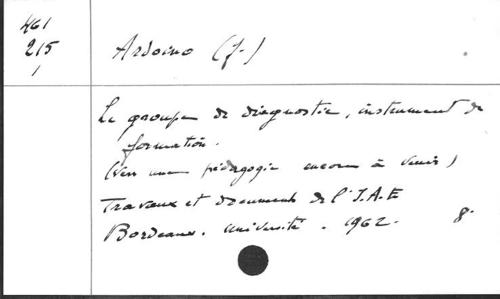 461
215
1
Ardoino (J-)
Le groupe de diagnostic, instrument de
formation.
(Vers une pédagogie encore à venir)
Travaux et documents de l'I.A.E
Bordeaux. Université. 1962. 8°